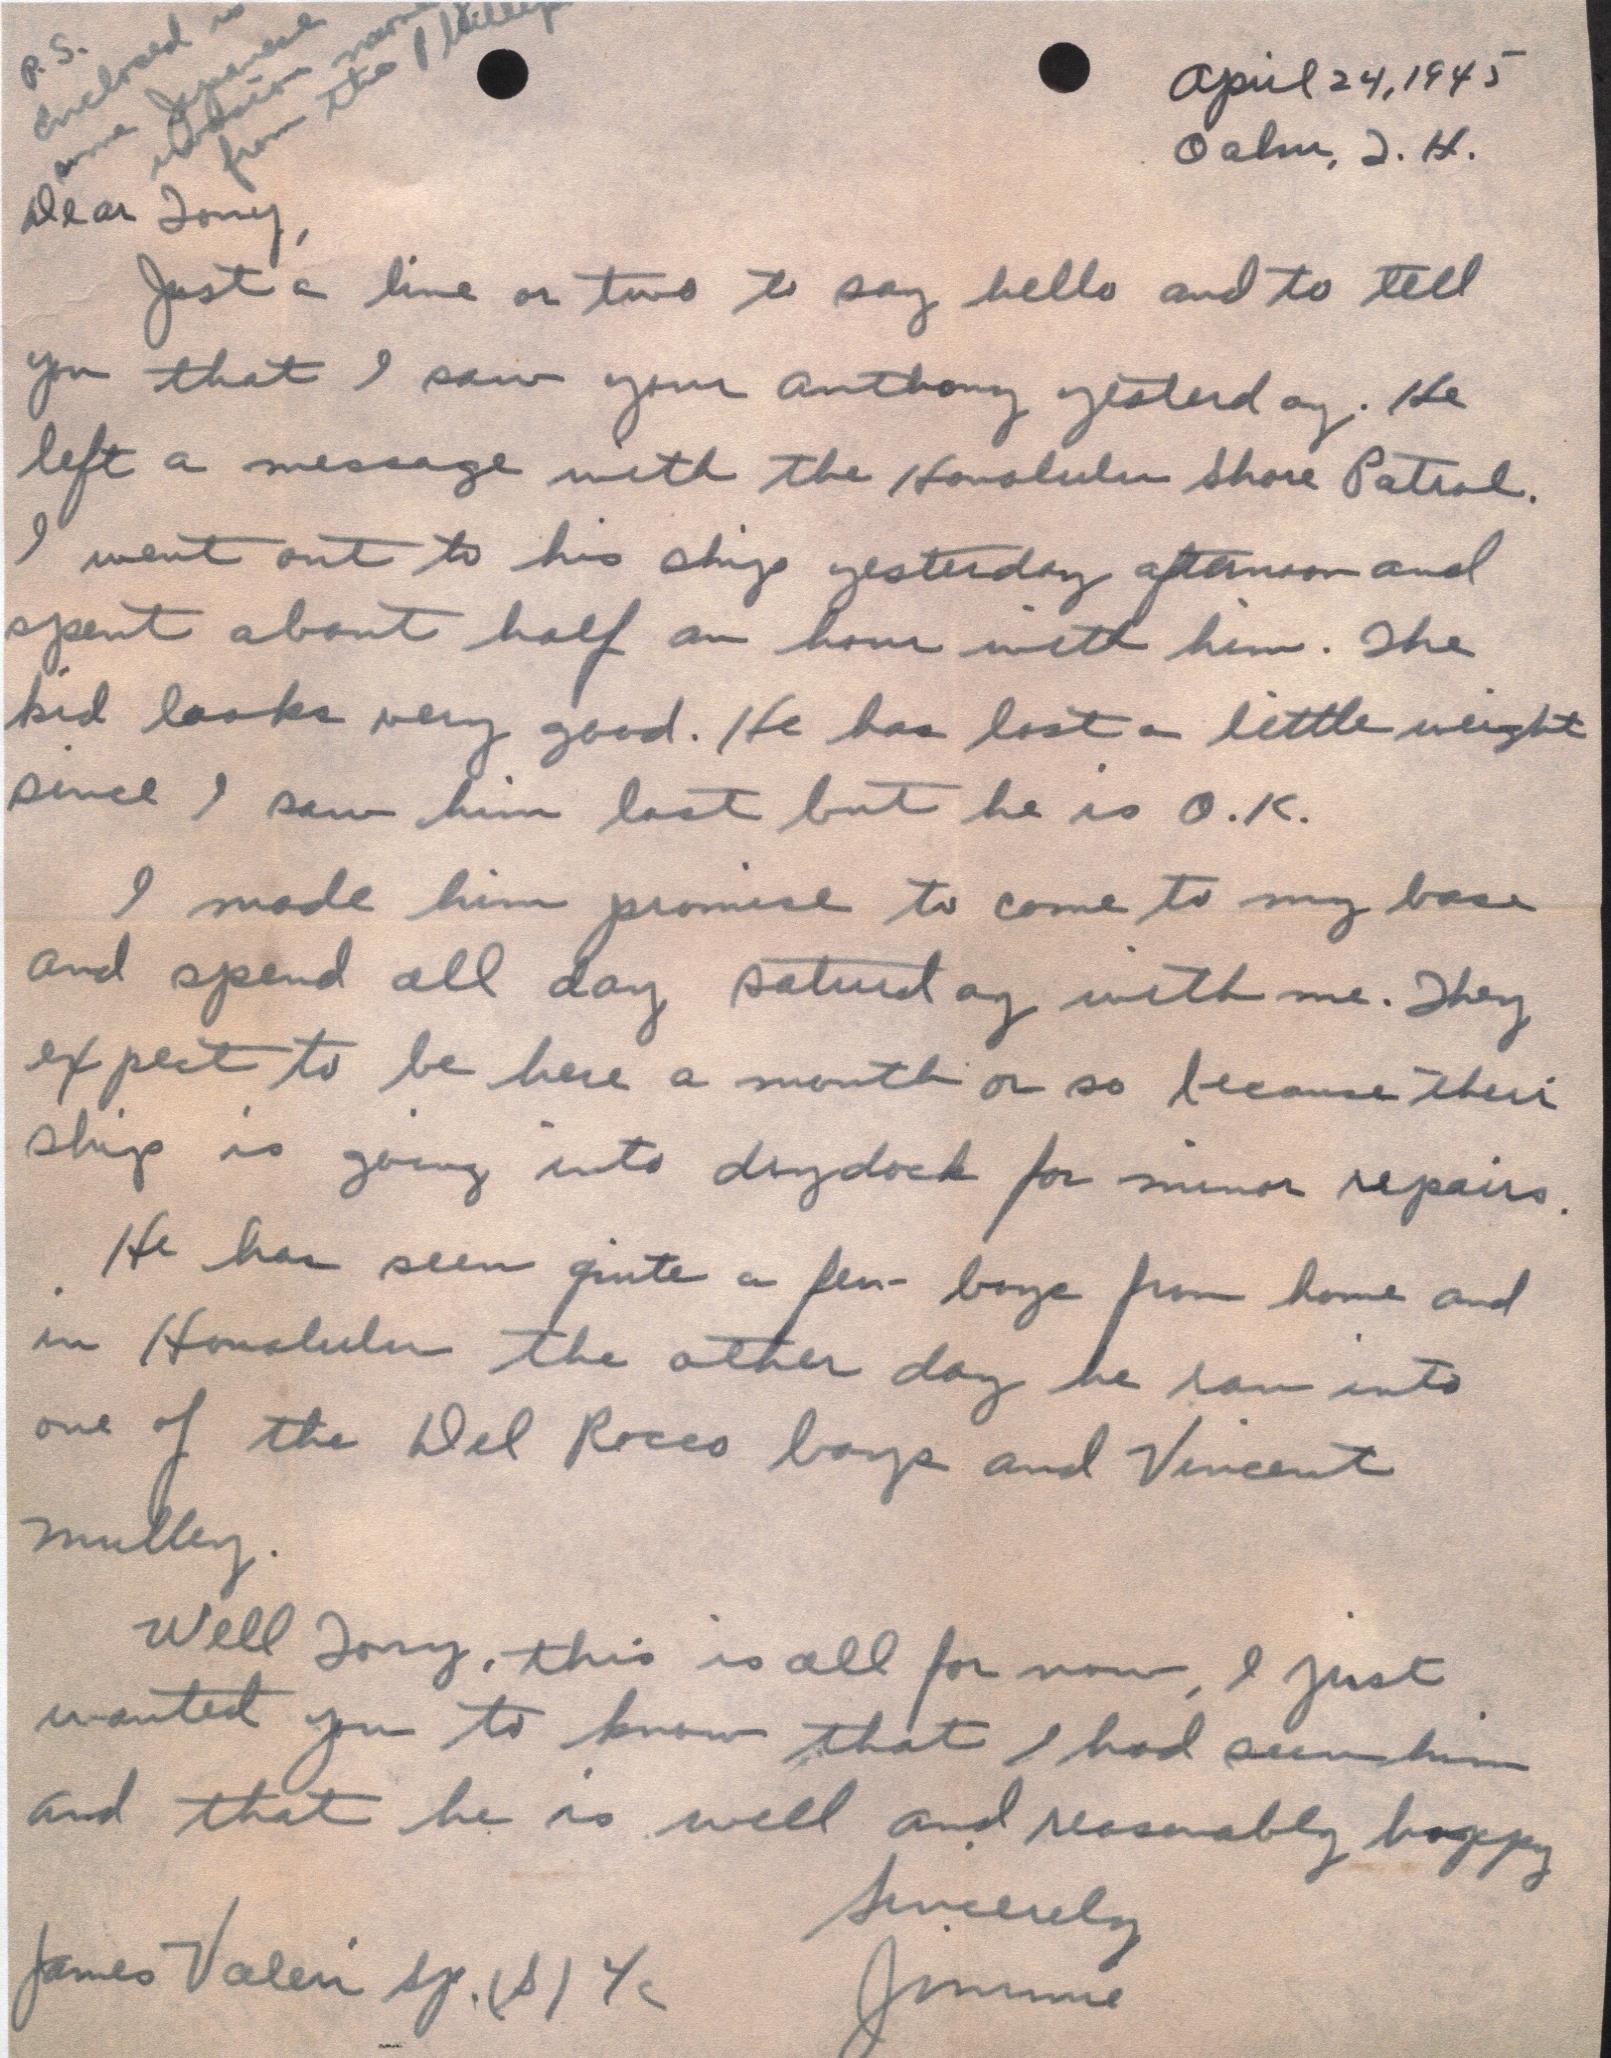 P.S.
Enclosed is
some Japanese
invasion money
from the Phillip
April 24, 1945
Oahu, T. H.
Dear Tony,
Just a line or two to say hello and to tell
you that I saw your Anthony yesterday. He
left a message with the Honolulu Shore Patrol.
I went out to his ship yesterday afternoon and
spent about half an hour with him. The
kid looks very good. He has lost a little weight
since I saw him last but he is O.K.
I made him promise to come to my base
and spend all day Saturday with me. They
expect to be here a month or so because their
ship is going into drydock for minor repairs.
He has seen quite a few boys from home and
in Honolulu the other day he ran into
one of the Del Rocco boys and Vincent
Mulley.
Well Tony, this is all for now, I just
wanted you to know that I had seen him
and that he is well and reasonably happy
Sincerely
Jimmie
James Valeri Sp. (S)